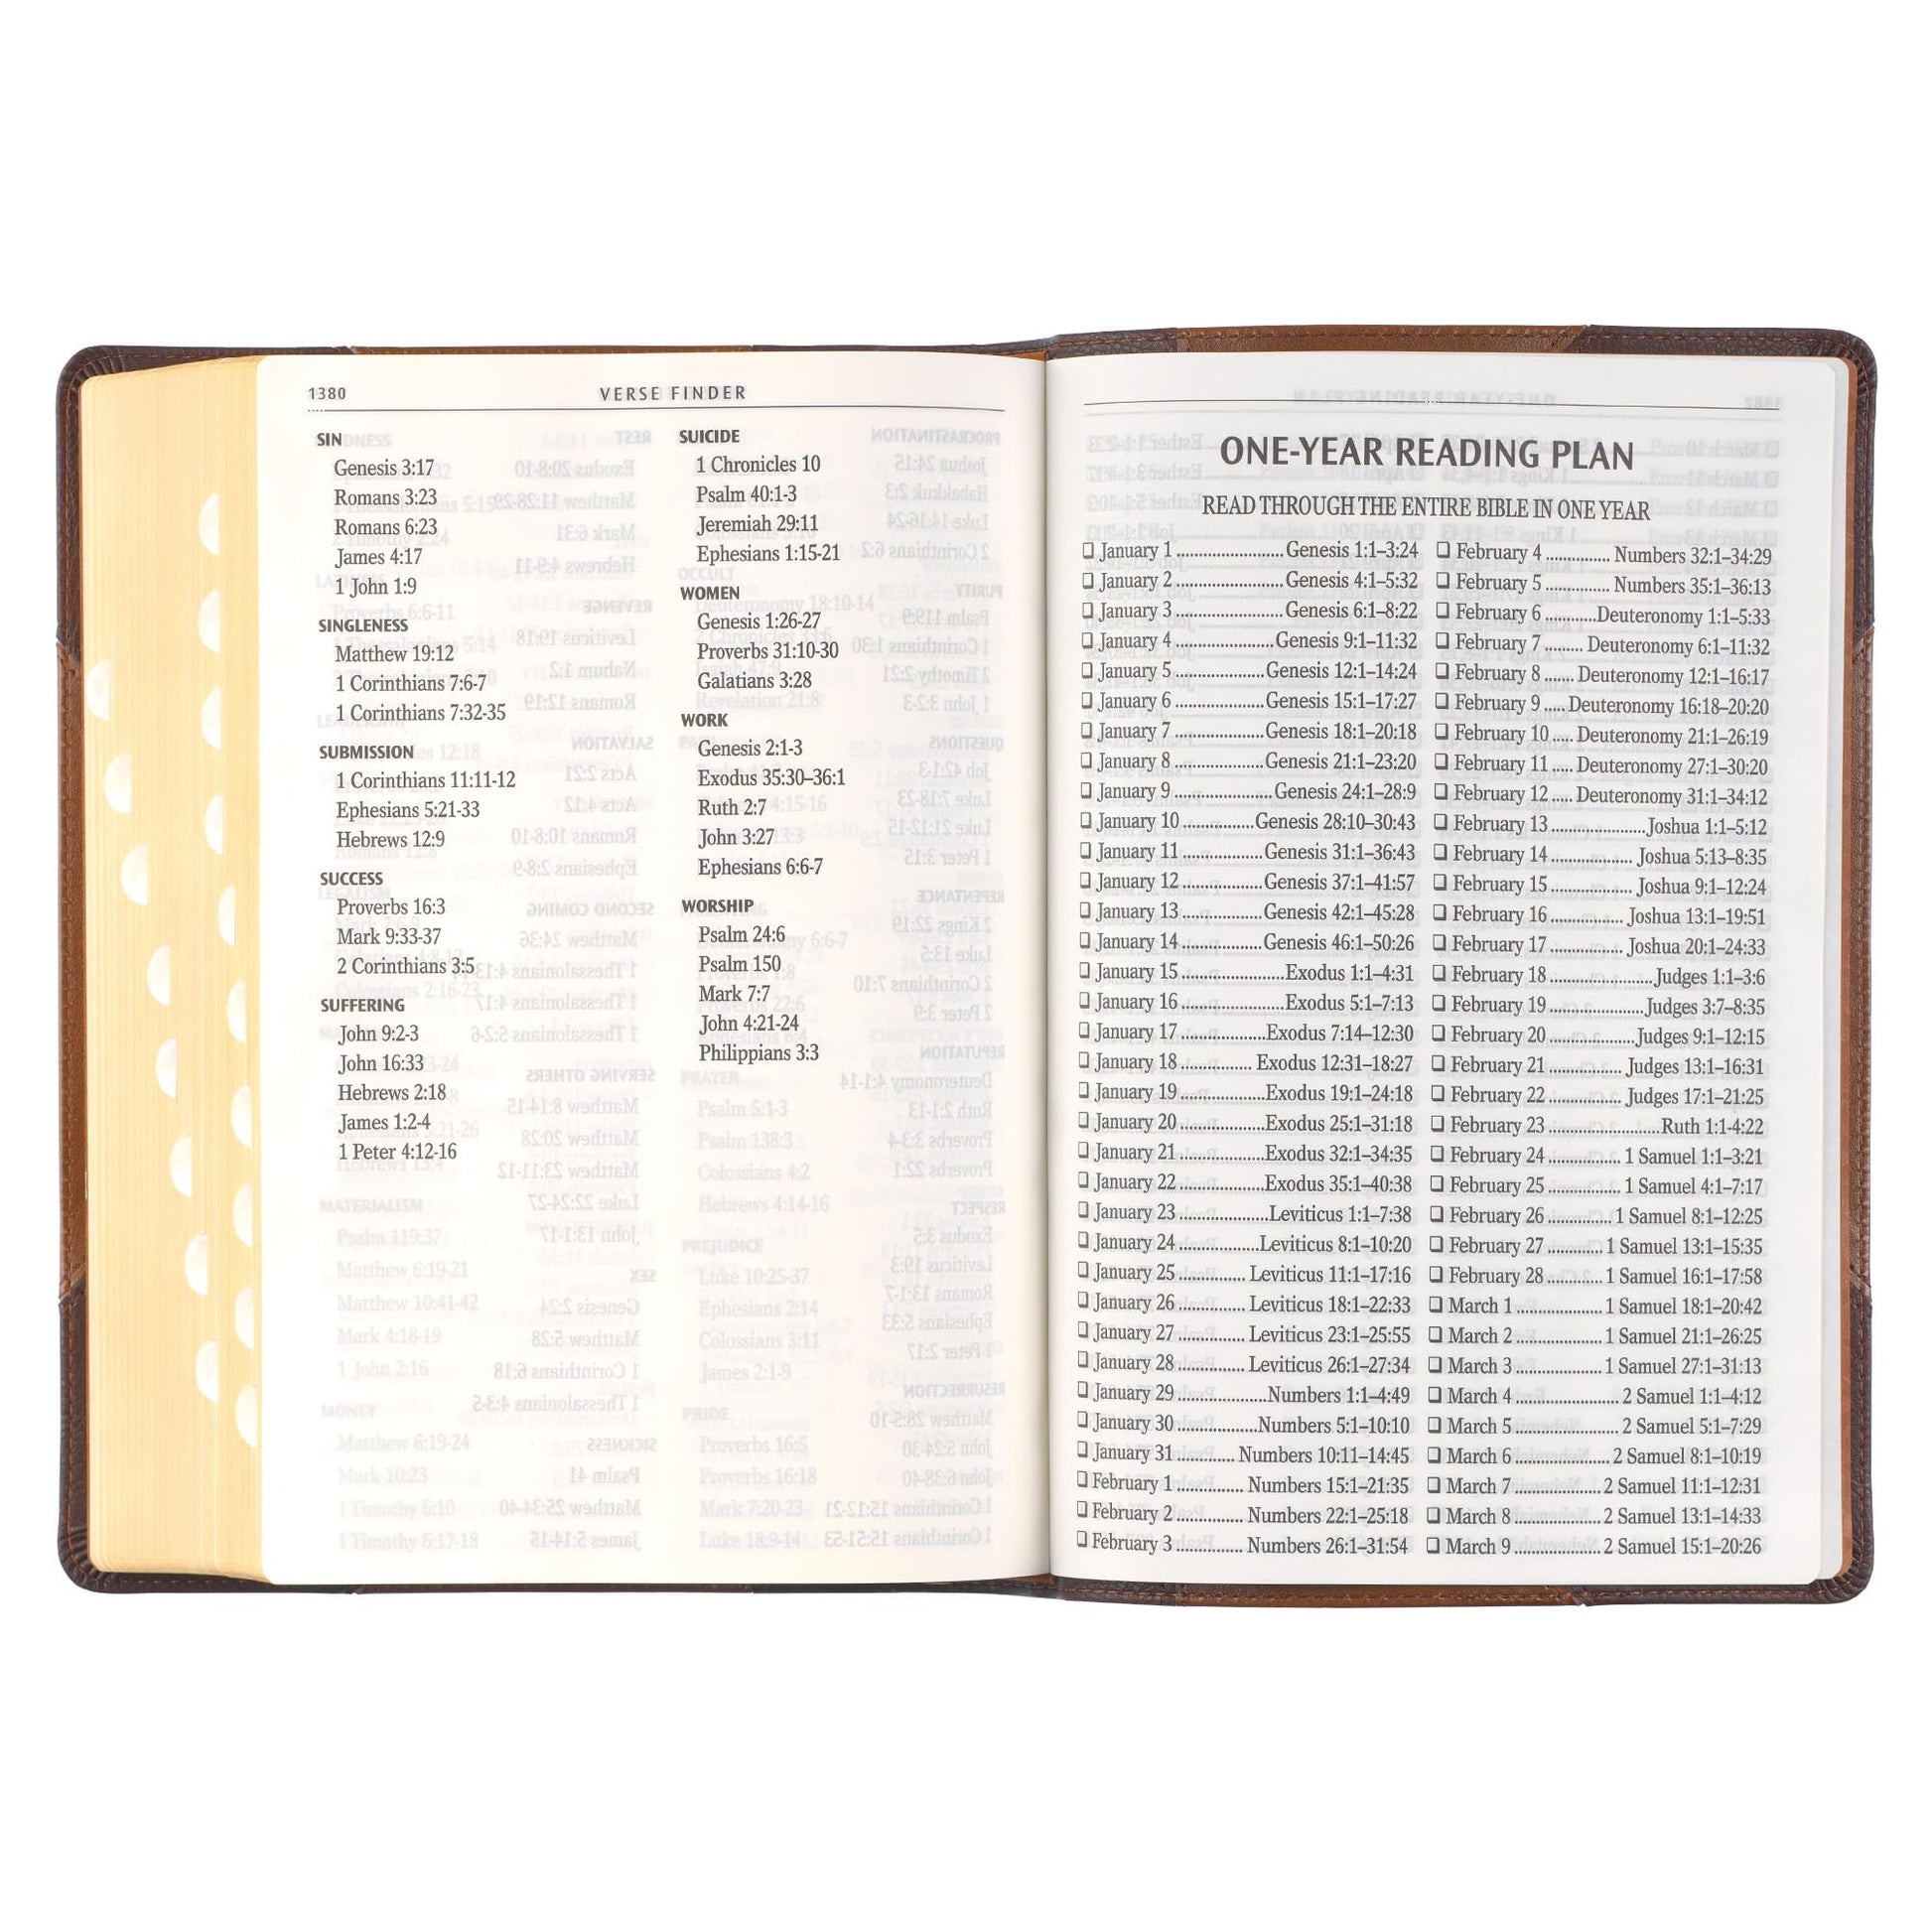 1380
VERSE FINDER
SIN
Genesis 3:17
Romans 3:23
Romans 6:23
James 4:17
1 John 1:9
SINGLENESS
Matthew 19:12
1 Corinthians 7:6-7
1 Corinthians 7:32-35
SUBMISSION
1 Corinthians 11:11-12
Ephesians 5:21-33
Hebrews 12:9
SUCCESS
Proverbs 16:3
Mark 9:33-37
2 Corinthians 3:5
SUFFERING
John 9:2-3
John 16:33
Hebrews 2:18
James 1:2-4
1 Peter 4:12-16
SUICIDE
1 Chronicles 10
Psalm 40:1-3
Jeremiah 29:11
Ephesians 1:15-21
WOMEN
Genesis 1:26-27
Proverbs 31:10-30
Galatians 3:28
WORK
Genesis 2:1-3
Exodus 35:30–36:1
Ruth 2:7
John 3:27
Ephesians 6:6-7
WORSHIP
Psalm 24:6
Psalm 150
Mark 7:7
John 4:21-24
Philippians 3:3
ONE-YEAR READING PLAN
READ THROUGH THE ENTIRE BIBLE IN ONE YEAR
January 1 Genesis 1:1–3:24
January 2 Genesis 4:1–5:32
January 3 Genesis 6:1–8:22
January 4 Genesis 9:1–11:32
January 5 Genesis 12:1–14:24
January 6 Genesis 15:1–17:27
January 7 Genesis 18:1–20:18
January 8 Genesis 21:1–23:20
January 9 Genesis 24:1–28:9
January 10 Genesis 28:10–30:43
January 11 Genesis 31:1–36:43
January 12 Genesis 37:1–41:57
January 13 Genesis 42:1–45:28
January 14 Genesis 46:1–50:26
January 15 Exodus 1:1–4:31
January 16 Exodus 5:1–7:13
January 17 Exodus 7:14–12:30
January 18 Exodus 12:31–18:27
January 19 Exodus 19:1–24:18
January 20 Exodus 25:1–31:18
January 21 Exodus 32:1–34:35
January 22 Exodus 35:1–40:38
January 23 Leviticus 1:1–7:38
January 24 Leviticus 8:1–10:20
January 25 Leviticus 11:1–17:16
January 26 Leviticus 18:1–22:33
January 27 Leviticus 23:1–25:55
January 28 Leviticus 26:1–27:34
January 29 Numbers 1:1–4:49
January 30 Numbers 5:1–10:10
January 31 Numbers 10:11–14:45
February 1 Numbers 15:1–21:35
February 2 Numbers 22:1–25:18
February 3 Numbers 26:1–31:54
February 4 Numbers 32:1–34:29
February 5 Numbers 35:1–36:13
February 6 Deuteronomy 1:1–5:33
February 7 Deuteronomy 6:1–11:32
February 8 Deuteronomy 12:1–16:17
February 9 Deuteronomy 16:18–20:20
February 10 Deuteronomy 21:1–26:19
February 11 Deuteronomy 27:1–30:20
February 12 Deuteronomy 31:1–34:12
February 13 Joshua 1:1–5:12
February 14 Joshua 5:13–8:35
February 15 Joshua 9:1–12:24
February 16 Joshua 13:1–19:51
February 17 Joshua 20:1–24:33
February 18 Judges 1:1–3:6
February 19 Judges 3:7–8:35
February 20 Judges 9:1–12:15
February 21 Judges 13:1–16:31
February 22 Judges 17:1–21:25
February 23 Ruth 1:1-4:22
February 24 1 Samuel 1:1–3:21
February 25 1 Samuel 4:1–7:17
February 26 1 Samuel 8:1–12:25
February 27 1 Samuel 13:1–15:35
February 28 1 Samuel 16:1–17:58
March 1 1 Samuel 18:1–20:42
March 2 1 Samuel 21:1–26:25
March 3 1 Samuel 27:1–31:13
March 4 2 Samuel 1:1–4:12
March 5 2 Samuel 5:1–7:29
March 6 2 Samuel 8:1–10:19
March 7 2 Samuel 11:1–12:31
March 8 2 Samuel 13:1–14:33
March 9 2 Samuel 15:1–20:26